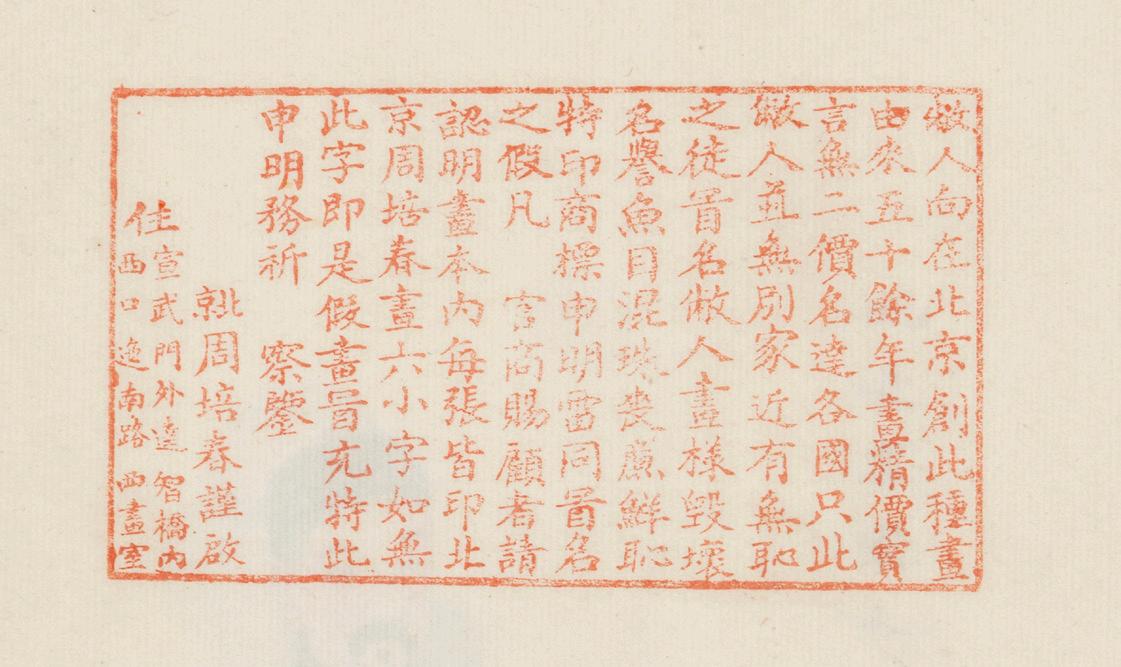 敝人向在北京創此種畫
由來五十餘年畫精價實
言無二價名達各國只此
敝人並無別家近有無恥
之徒冒名敝人畫樣毀壞
名譽魚目混珠喪廉鮮恥
特印商標申明雷同冒名
之假凡 官商賜顧者請
認明畫本內每張皆印北
京周培春畫六小字如無
此字即是假畫冒充特此
申明務祈 察鑒
周培春謹啟
住宣武門外達智橋內
西口迤南路西畫室